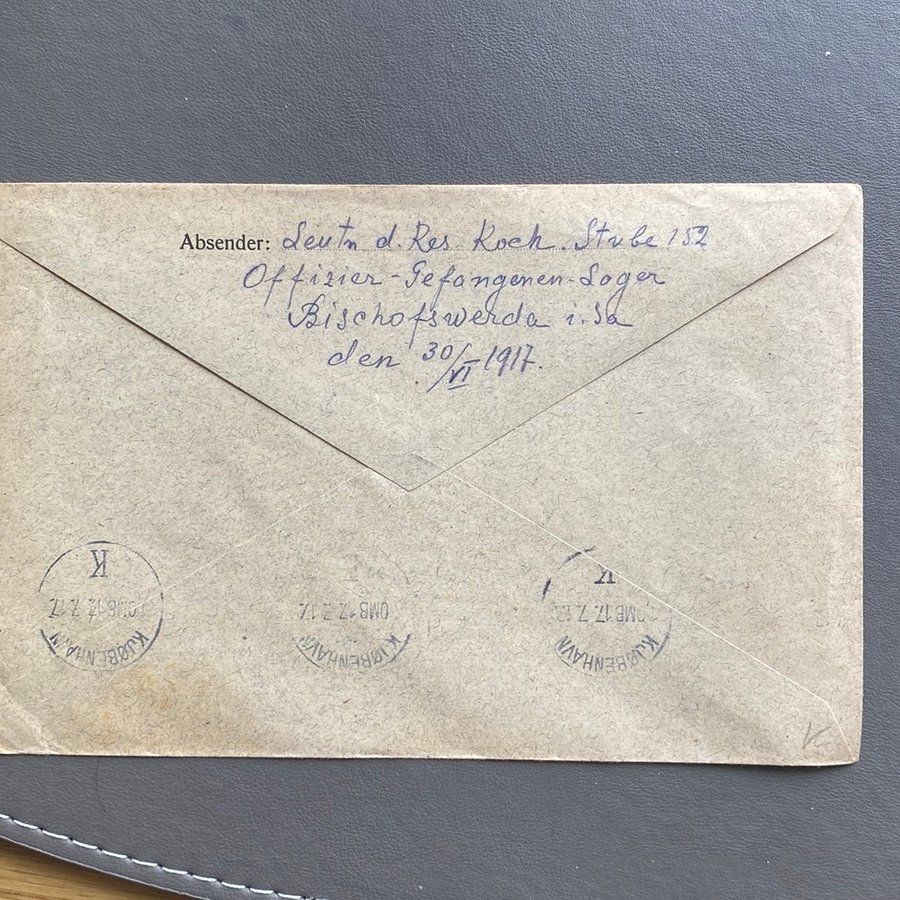 Absender: Leutn d. Res. Koch. Stube 152
Offizier-Gefangenen-Lager
Bischofswerda i. Sa
den 30/VI 1917.
K
OMB 17. 7. 17.
KJØBENHAVN
OMB 17. 7. 17.
KJØBENHAVN
K
OMB 17. 7. 17
KJØBENHAVN